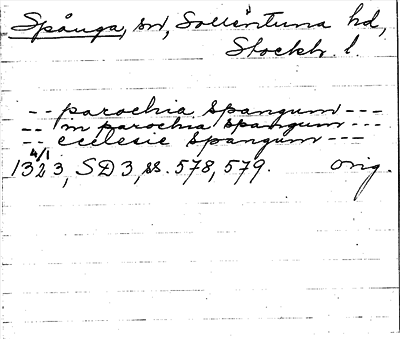 Spånga, sn, Sollentuna hd,
Stockh. l.
-- parochia Spangum ---
-- in parochia Spangum ---
-- ecclesie Spangum ---
4/1
1323, SD 3, ss. 578, 579. orig.